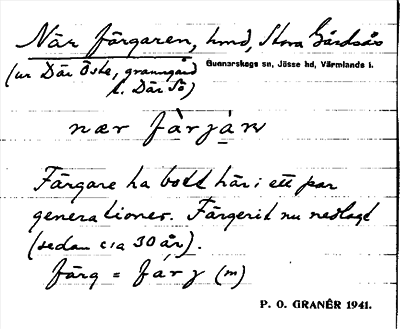 När färgaren, hmd, Stora Gårdsås
Gunnarskogs sn, Jösse hd, Värmlands l.
(ur Där Öste, granngård
t. Där Sö)
nær fàrjáṇ
Färgare ha bott här i ett par
generationer. Färgerit nu nedlagt
(sedan c:a 30 år).
färg = fárj (m)
P. O. GRANÉR 1941.